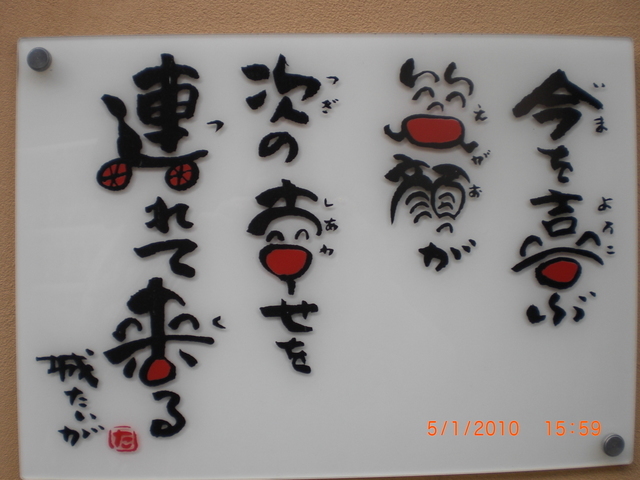 今を喜ぶ
いま
よろこ
笑顔が
えがお
次の幸せを
つぎ
しあわ
連れて来る
つ
く
城たいが
た
5/1/2010 15:59